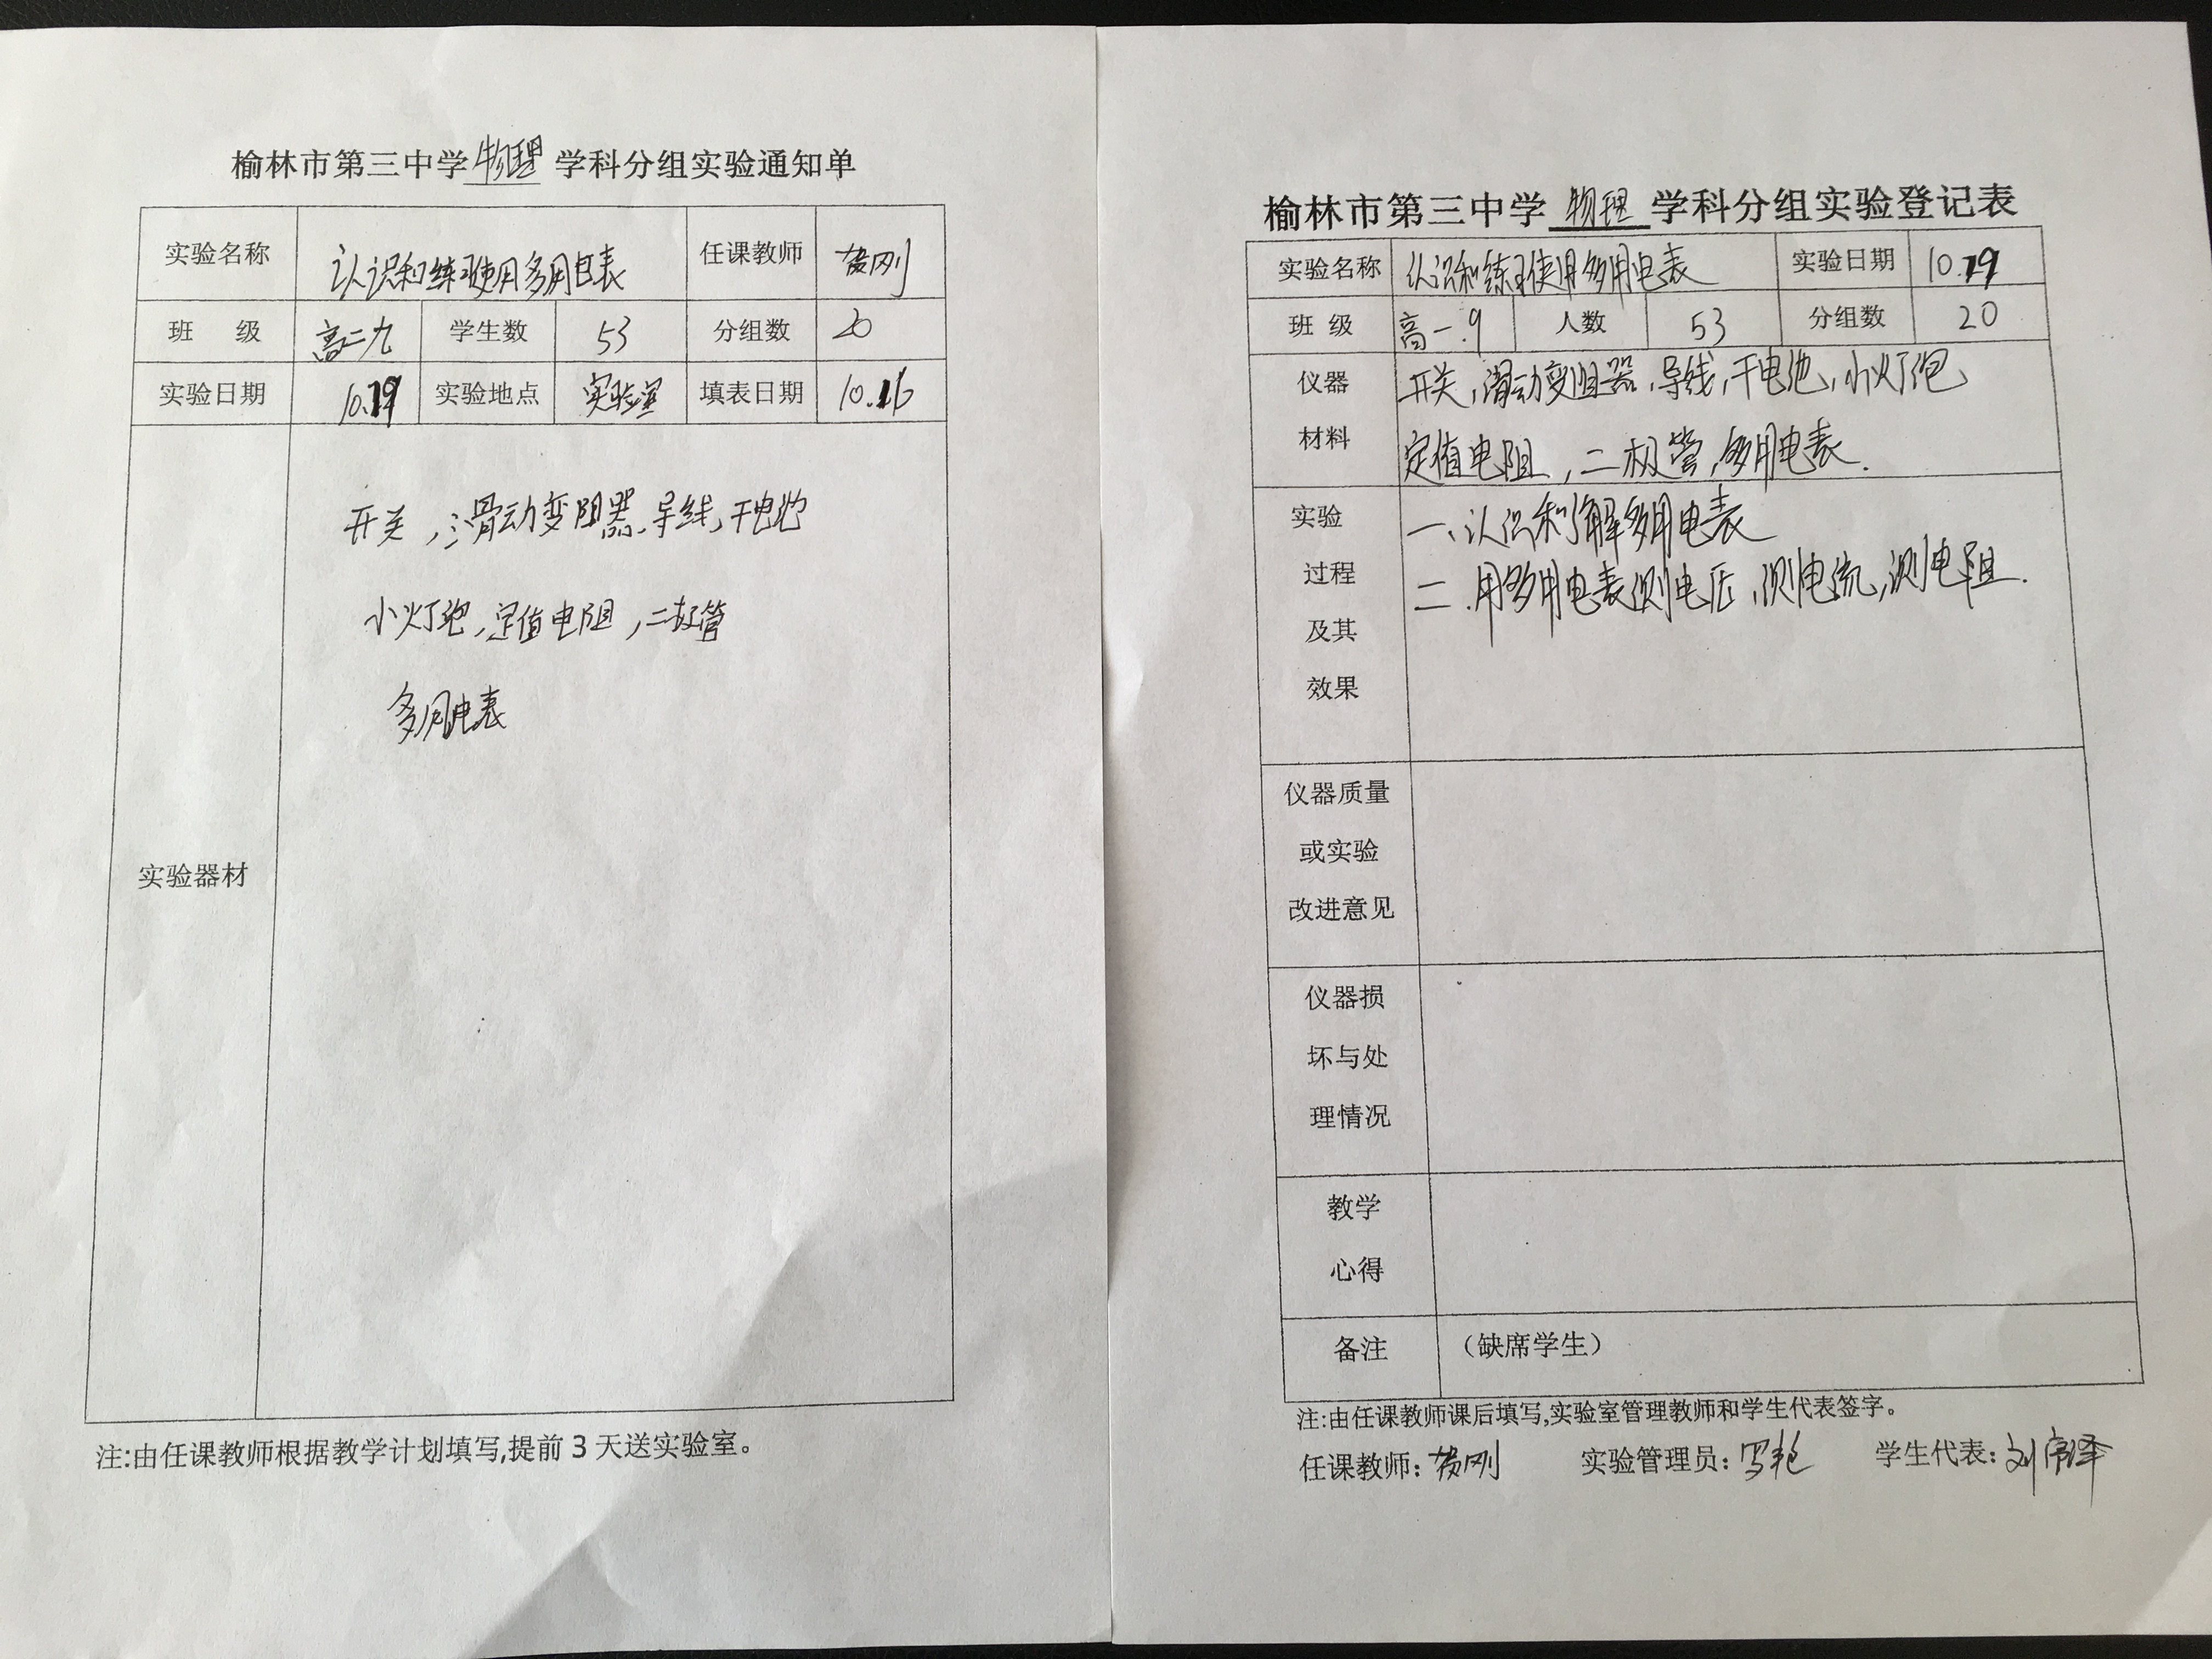 榆林市第三中学 物理 学科分组实验通知单
实验名称 认识和练习使用多用电表 任课教师 刚
班 级 高二九 学生数 53 分组数 20
实验日期 10.19 实验地点 实验室 填表日期 10.16
实验器材
开关,滑动变阻器、导线,干电池
小灯泡,定值电阻,二极管
多用电表
注:由任课教师根据教学计划填写,提前 3 天送实验室。
榆林市第三中学 物理 学科分组实验登记表
实验名称 认识和练习使用多用电表 实验日期 10.19
班 级 高一.9 人数 53 分组数 20
仪器 开关,滑动变阻器,导线,干电池,小灯泡
材料 定值电阻,二极管,多用电表.
实验 一、认识和了解多用电表
过程 二.用多用电表测电压,测电流,测电阻.
及其
效果
仪器质量
或实验
改进意见
仪器损
坏与处
理情况
教学
心得
备注 (缺席学生)
注:由任课教师课后填写,实验室管理教师和学生代表签字。
任课教师: 刚 实验管理员: 学生代表: 刘泽